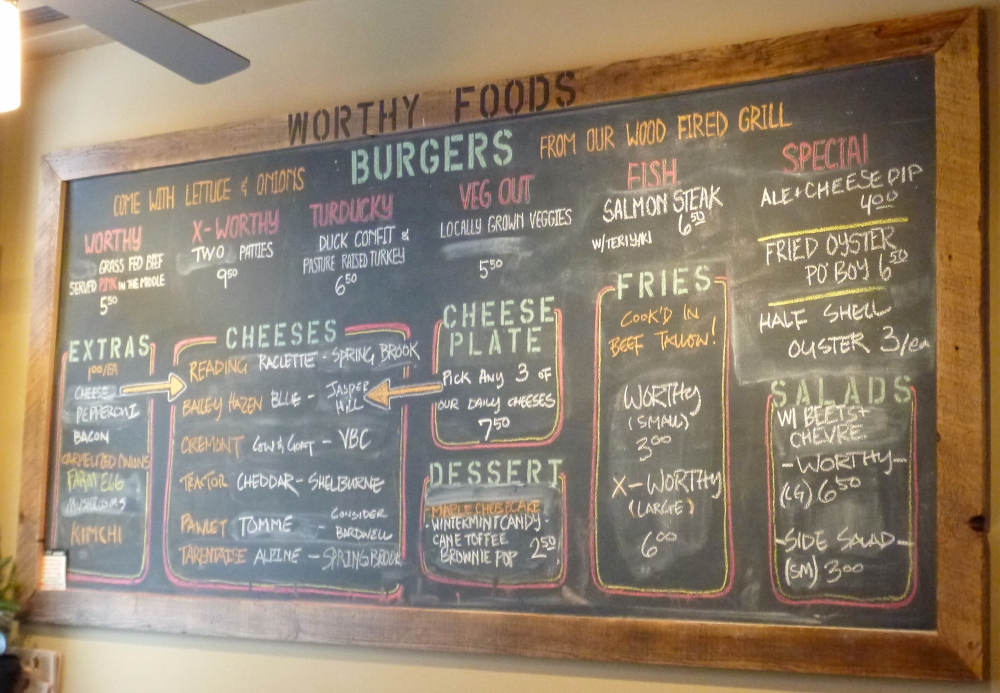 WORTHY FOODS
COME WITH LETTUCE & ONIONS
BURGERS
FROM OUR WOOD FIRED GRILL
WORTHY
GRASS FED BEEF
SERVED PINK IN THE MIDDLE
5 50
X-WORTHY
TWO PATTIES
9 50
TURDUCKY
DUCK CONFIT &
PASTURE RAISED TURKEY
6 50
VEG OUT
LOCALLY GROWN VEGGIES
5 50
FISH
SALMON STEAK
6 50
W/TERIYAKI
SPECIAL
ALE+CHEESE DIP
4 00
FRIED OYSTER
PO'BOY 6 50
HALF SHELL
OUSTER 3/ea
EXTRAS
1 00/EA
CHEESE
PEPPERONI
BACON
CARMELIZED ONIONS
FARM EGG
MUSHROOMS
KIMCHI
CHEESES
READING RACLETTE - SPRING BROOK
BAILEY HAZEN BLUE - JASPER
HILL
CREMONT COW & GOAT - VBC
TRACTOR CHEDDAR - SHELBURNE
PAWLET TOMME - CONSIDER
BARDWELL
TARENTAISE ALPINE - SPRING BROOK
CHEESE
PLATE
PICK ANY 3 OF
OUR DAILY CHEESES
7 50
DESSERT
MAPLE CHEESECAKE
- WINTERMINT CANDY -
CANE TOFFEE
BROWNIE POP 2 50
FRIES
COOK'D IN
BEEF TALLOW!
WORTHY
(SMALL)
3 00
X-WORTHY
(LARGE)
6 00
SALADS
W/ BEETS+
CHEVRE
-WORTHY-
(LG) 6 50
-SIDE SALAD-
(SM) 3 00